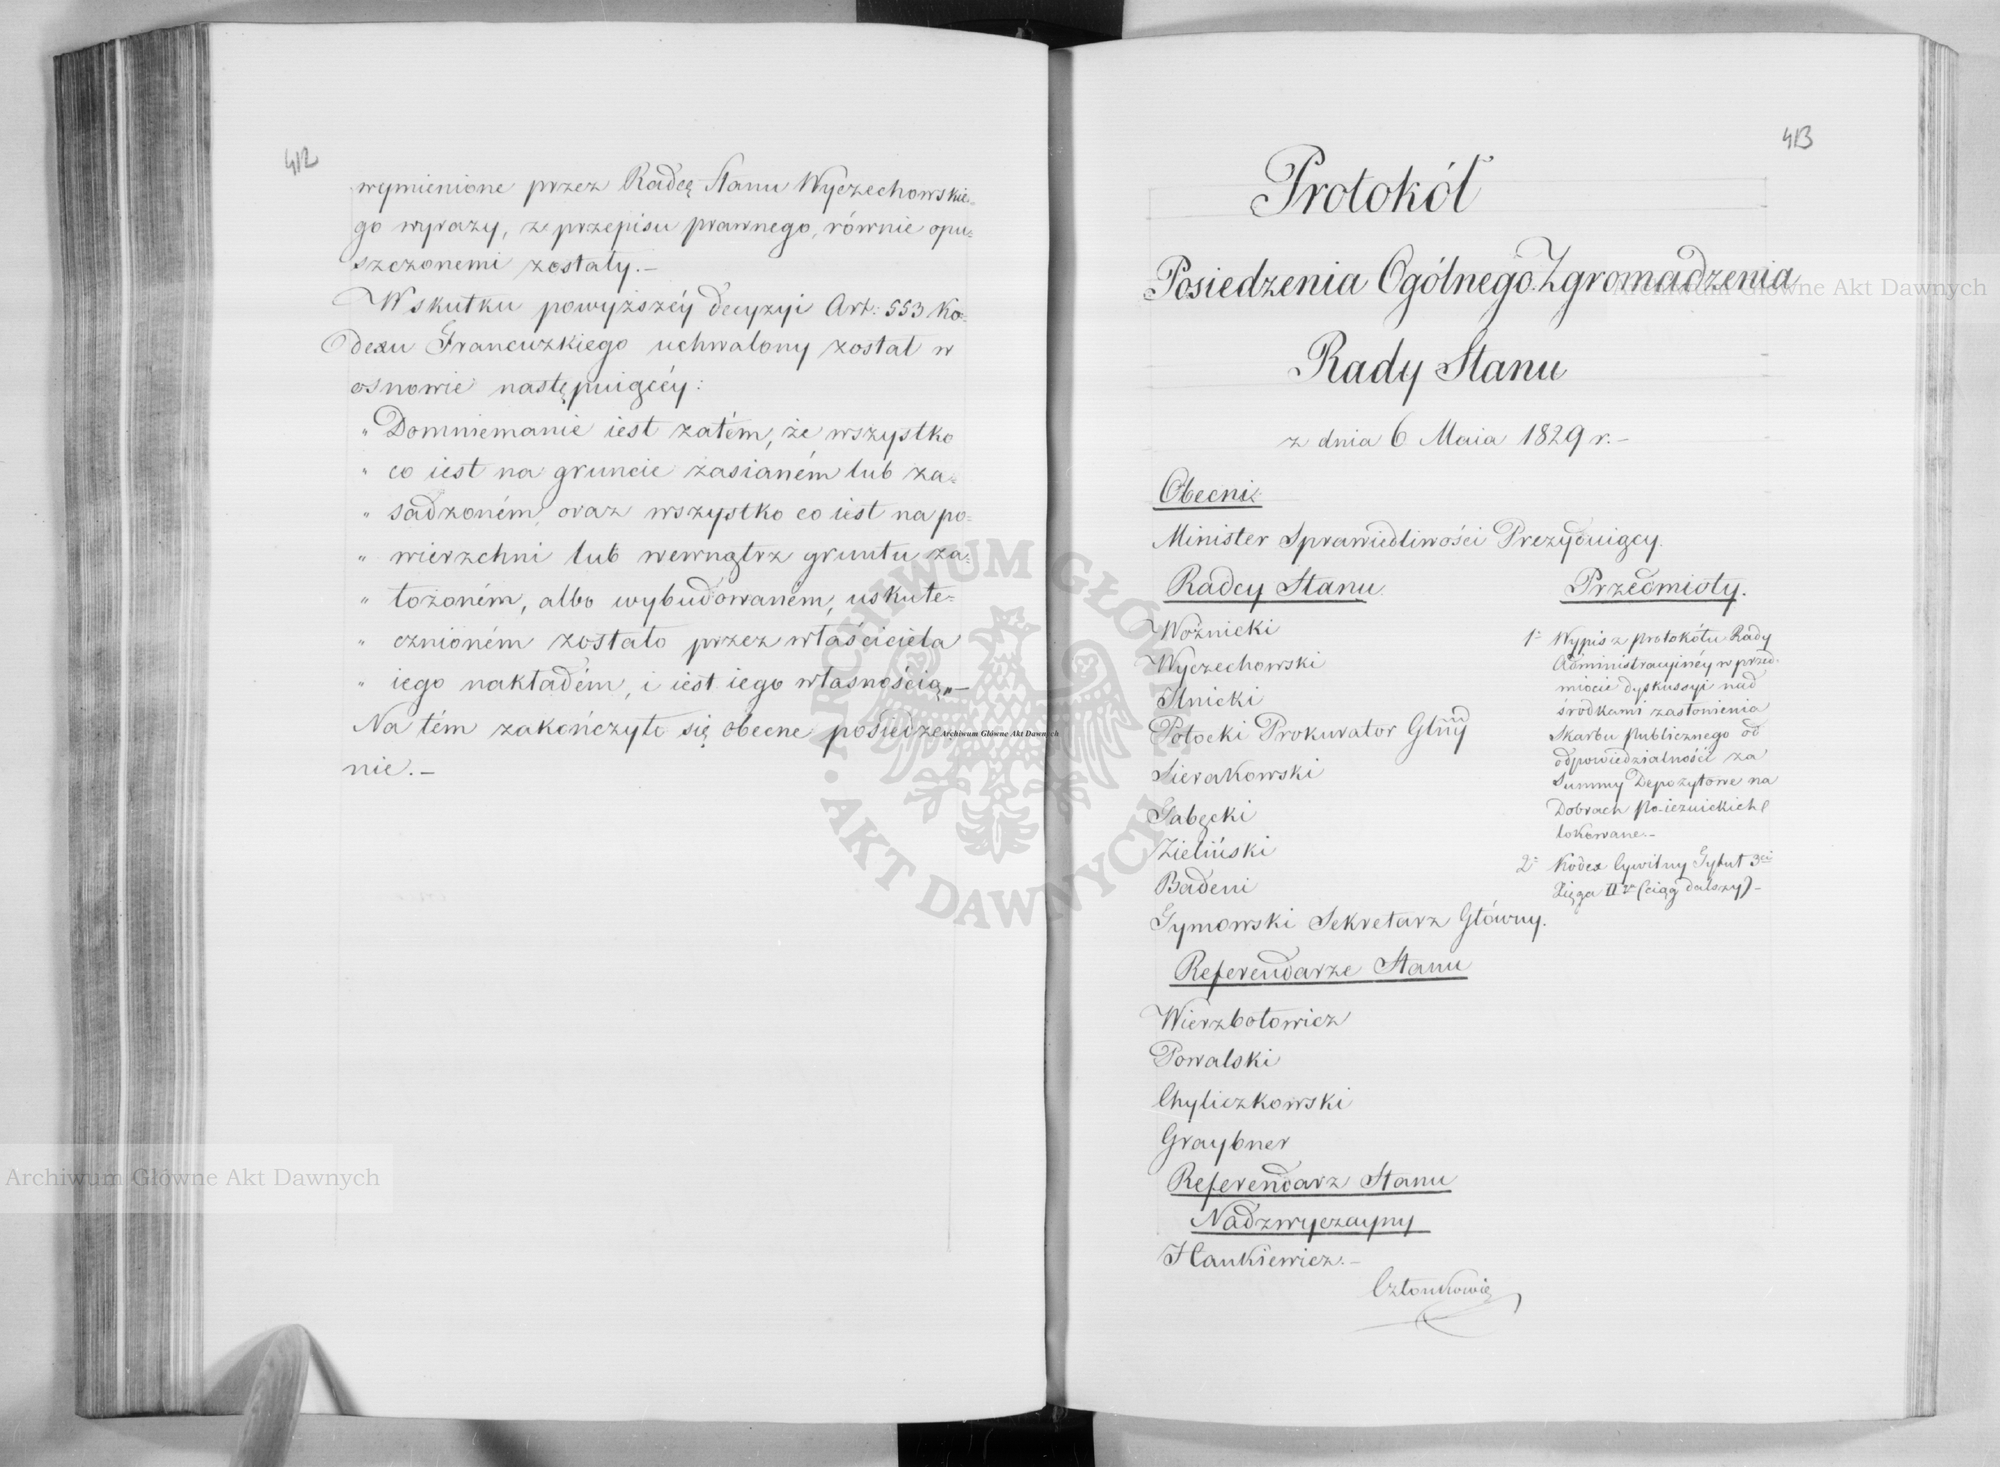 412
wymienione przez Radcę Stanu Wyczechowskie-
go wyrazy, z przepisu prawnego, równie opu-
szczonemi zostały.—
W skutku powyższéy decyzyi Art: 553 Ko-
dexu Francuzkiego uchwalony został w
osnowie następuiącéy:
„ Domniemanie iest zatém, że wszystko
„ co iest na gruncie zasianém lub za-
„ sadzoném, oraz wszystko co iest na po-
„ wierzchni lub wewnątrz gruntu za-
„ łożoném, albo wybudowaném, uskute-
„ cznioném zostało przez właściciela
„ iego nakładém, i iest iego własnością„—
Na tém zakończyło się obecne posiedze
nie.—
413
Protokół
Posiedzenia Ogólnego Zgromadzenia
Rady Stanu
z dnia 6 Maia 1829 r.—
Obecni:
Minister Sprawiedliwości Prezyduiący.
Radcy Stanu.
Woźnicki
Wyczechowski
Linicki
Potocki Prokurator Głny
Sierakowski
Gabęcki
Zieliński
Badeni
Tymowski Sekretarz Główny.
Referendarze Stanu
Wierzbołowicz
Powalski
Chyliczkowski
Graybner
Referendarz Stanu
Nadzwyczayny
Hankiewicz.—
Członkowie
Przedmioty.
1- Wypis z protokółu Rady
Administracyinéy w przed-
miocie dyskussyi nad
środkami zasłonienia
Skarbu publicznego od
odpowiedzialności za
Summy Depozytowe na
Dobrach Po-iezuickich
lokowane.—
2- Kodex Cywilny Tytuł 3ci
Xięga IIga (ciąg dalszy)—
Archiwum Główne Akt Dawnych
Archiwum Główne Akt Dawnych
Archiwum Główne Akt Dawnych
ARCHIWUM GŁÓWNE AKT DAWNYCH